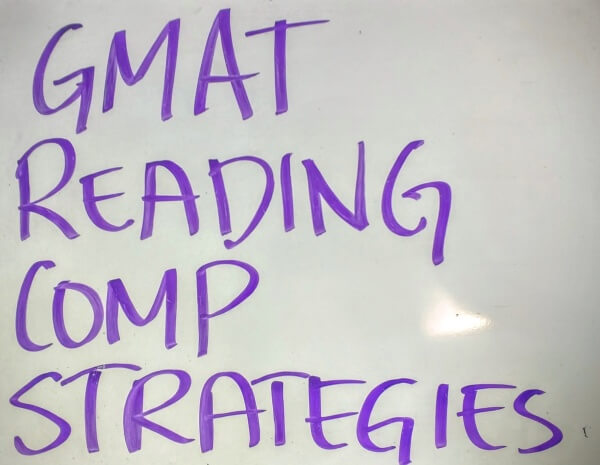 GMAT
READING
COMP
STRATEGIES